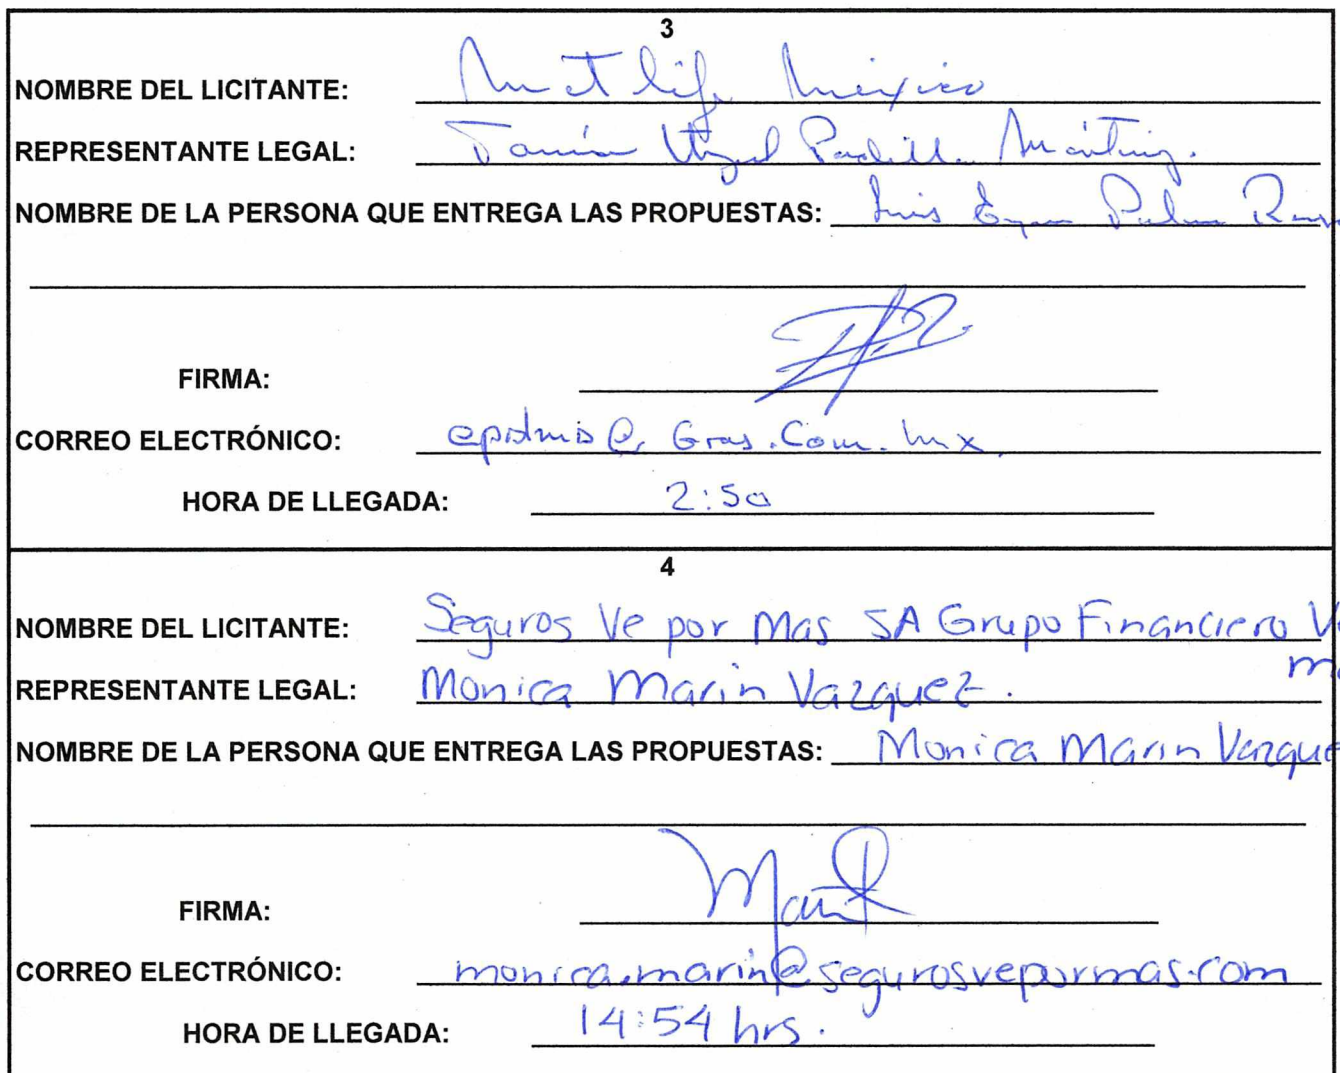 3
NOMBRE DEL LICITANTE: Metlife México
REPRESENTANTE LEGAL: Padilla Mártinez.
NOMBRE DE LA PERSONA QUE ENTREGA LAS PROPUESTAS: Luis
FIRMA:
CORREO ELECTRÓNICO: Gras.Com.mx
HORA DE LLEGADA: 2:50
4
NOMBRE DEL LICITANTE: Seguros Ve por Mas SA Grupo Financiero Ve
REPRESENTANTE LEGAL: Monica Marin Vazquez.
NOMBRE DE LA PERSONA QUE ENTREGA LAS PROPUESTAS: Monica Marin Vazque
FIRMA:
CORREO ELECTRÓNICO: monica.marin@segurosvepormas.com
HORA DE LLEGADA: 14:54 hrs.